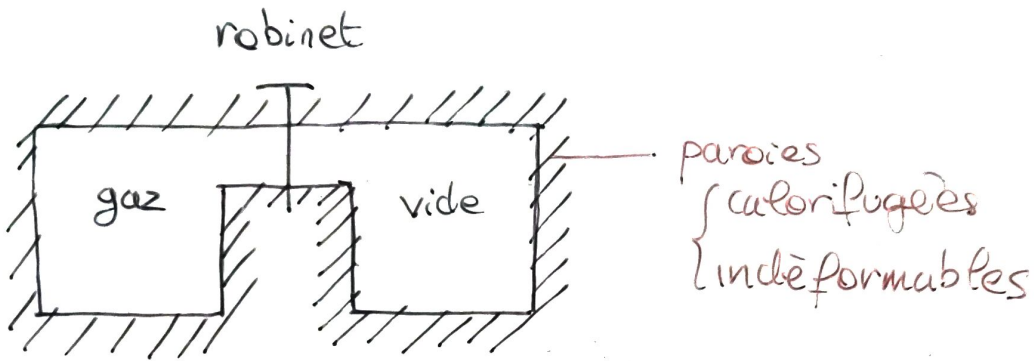 robinet
gaz
vide
paroies
calorifugées
indéformables